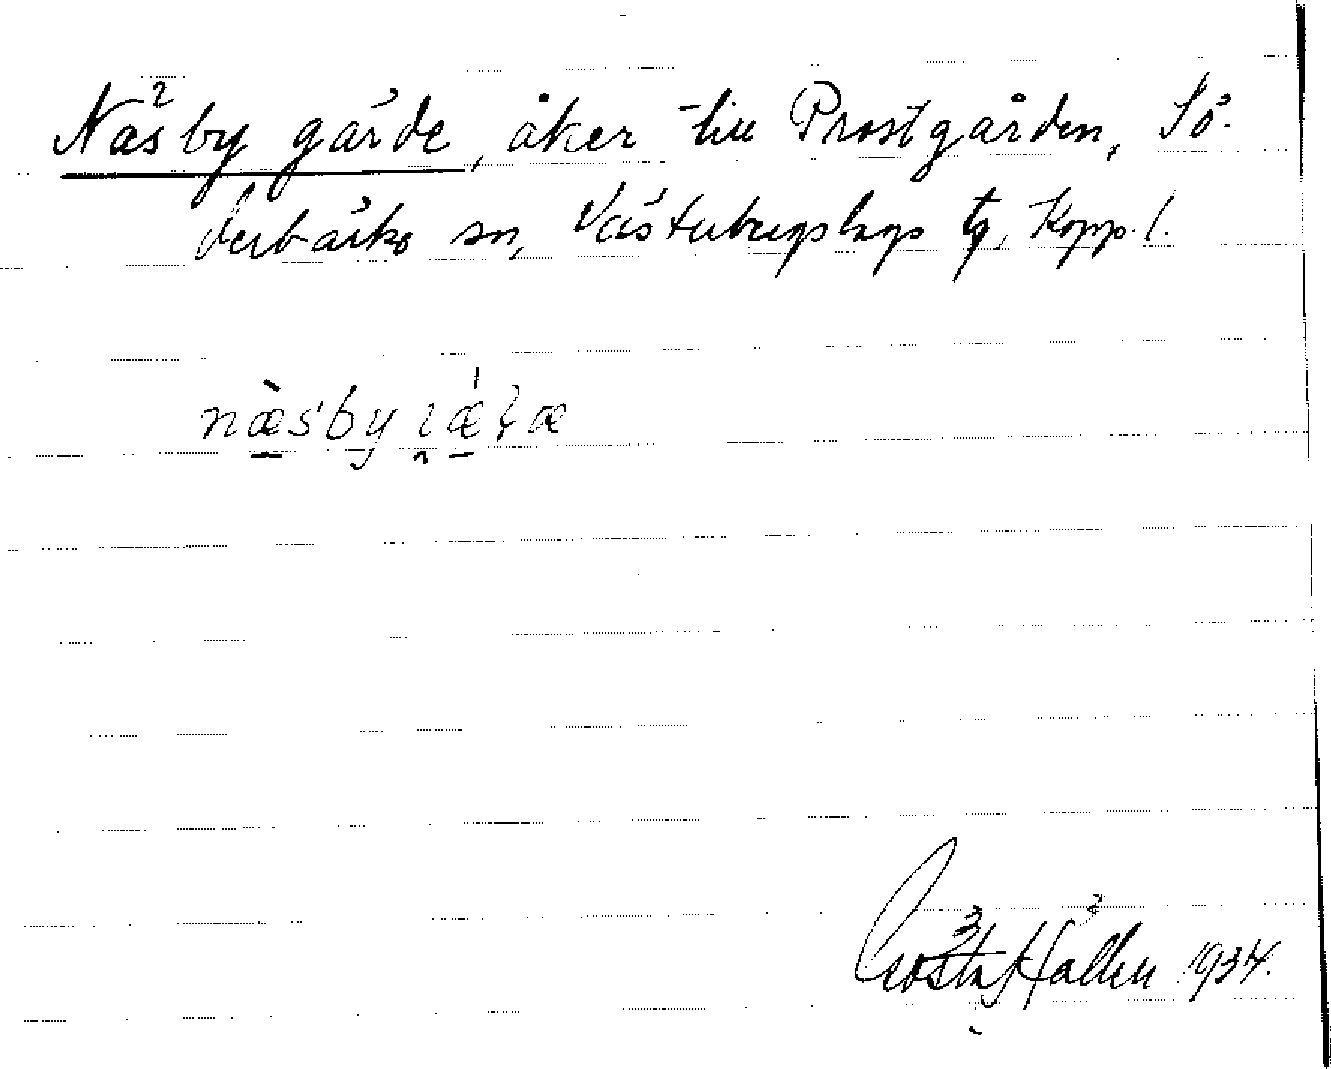 Näsby gärde, åker till Prostgården, Sö-
derbärke sn, Västerbergslags tg, Kopp. l.
næsby
Gösta Hallén 1934.